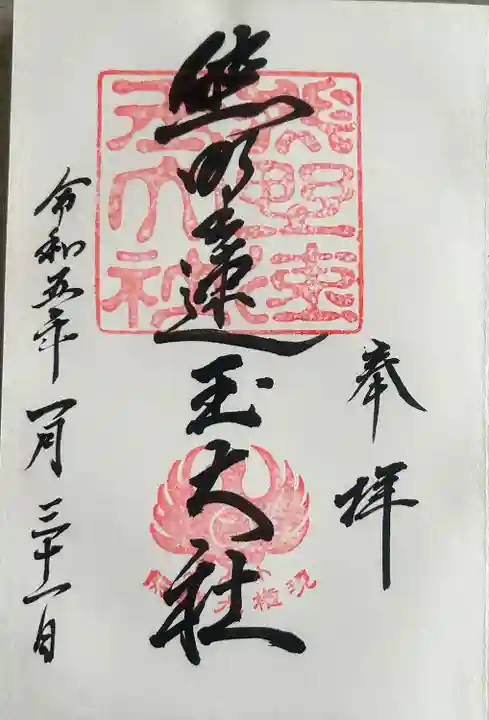 奉拝
熊野速玉大社
熊野速玉大社
令和五年一月三十一日